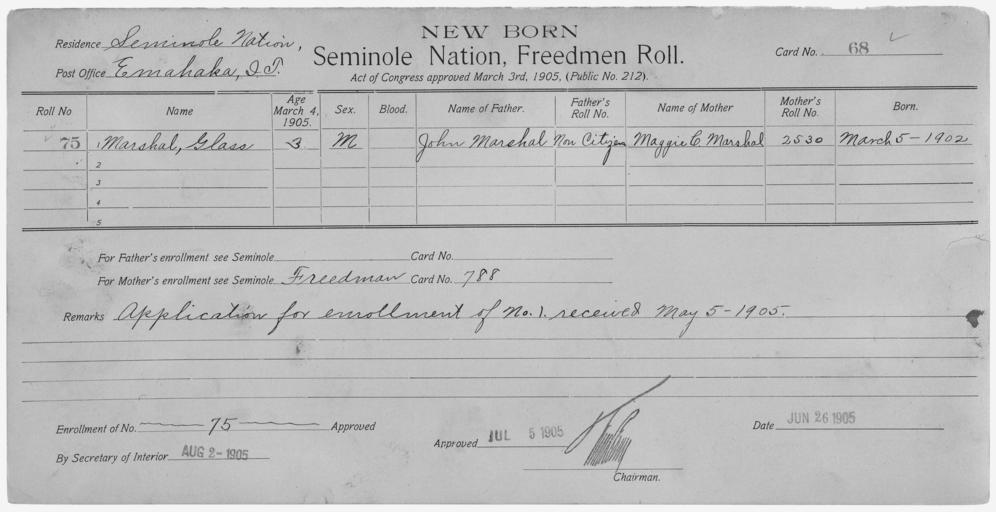 NEW BORN
Residence Seminole Nation,
Seminole Nation, Freedmen Roll.
Card No. 68
Post Office Emahaka, I.T.
Act of Congress approved March 3rd, 1905, (Public No. 212).
Roll No Name Age March 4, 1905. Sex. Blood. Name of Father. Father's Roll No. Name of Mother Mother's Roll No. Born.
75 1 Marshal, Glass 3 M John Marshal Non Citizen Maggie C Marshal 2530 March 5-1902
2
3
4
5
For Father's enrollment see Seminole Card No.
For Mother's enrollment see Seminole Freedman Card No. 788
Remarks Application for enrollment of No. 1. received May 5-1905.
Enrollment of No. 75 Approved
Approved JUL 5 1905
Date JUN 26 1905
By Secretary of Interior AUG 2-1905
Chairman.